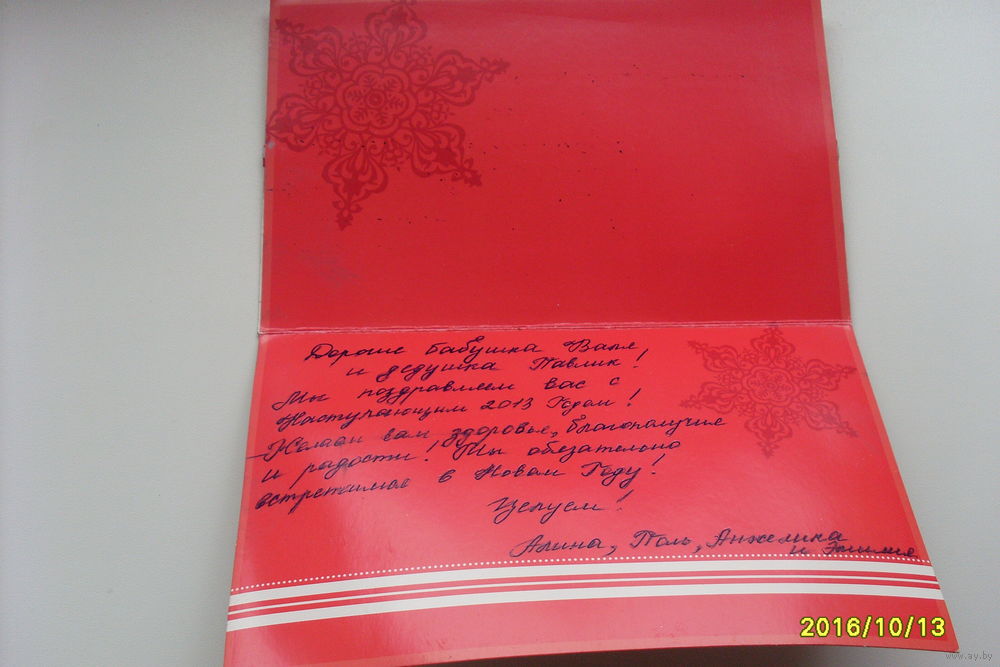 Дорогие бабушка Валя
и дедушка Павлик!
Мы поздравляем вас с
Наступающим 2013 Годом!
Желаем вам здоровье, благополучие
и радости! Мы обезательно
встретимся в Новом Году!
Целуем!
Алина, Поль, Анжелика
и Эмилие
2016/10/13
www.ay.by